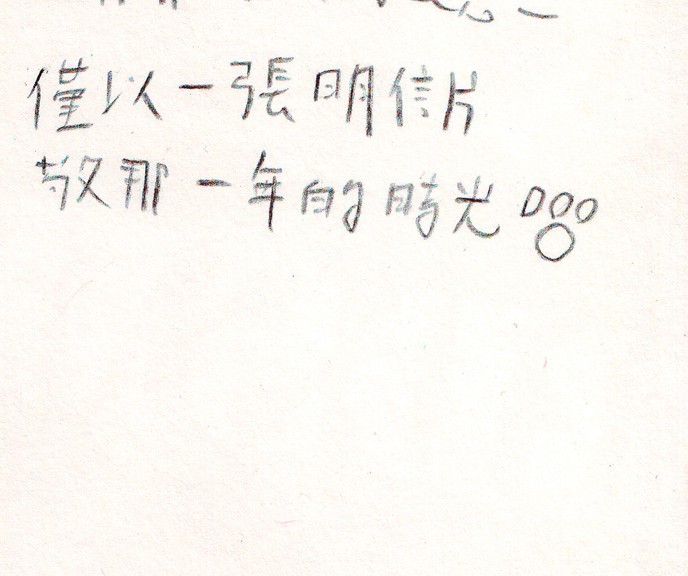 僅以一張明信片
敬那一年的時光